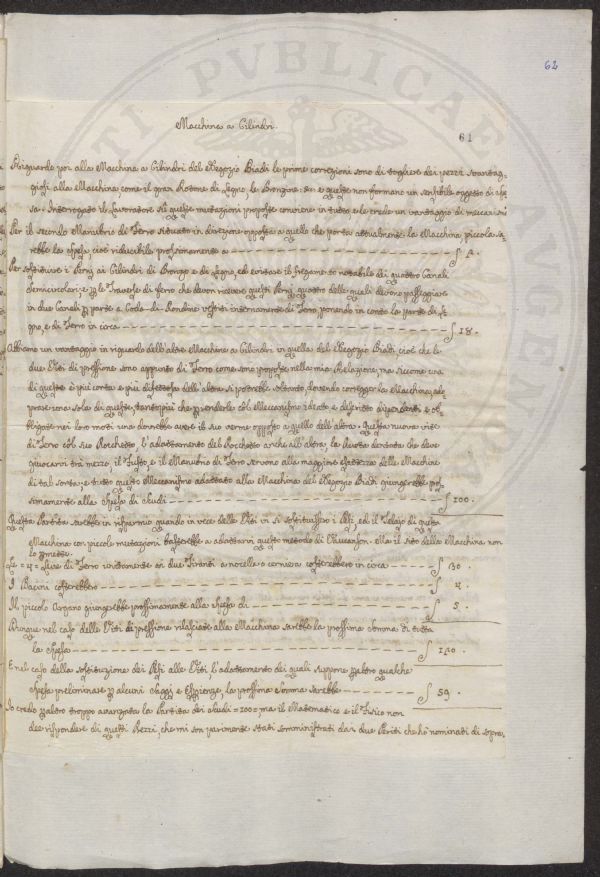 62
Macchina a Cilindri.
61
Riguardo poi alla Macchina a Cilindri del Negozio Biadi le prime correzioni sono di togliere dei pezzi svantag-
giosi alla Macchina come il gran Rotone di Legno, le Bronzine &c: e queste non formano un sensibile oggetto di spe
sa. Interrogato il Lavoratore su queste mutazioni proposte conviene in tutto e le crede un vantaggio di
Per il secondo Manubrio di Ferro situato in direzione opposta a quello che porta attualmente la Macchina piccola sa-
rebbe la spesa, cioè riducibile prossimamente a
Per sostituire i Perni ai Cilindri di Bronzo e di Legno, ed evitare il fregamento notabile di quattro Canali
Semicircolari, e le Traverse di ferro che devon ricevere questi Perni quattro delle quali devono passeggiare
in due Canali parte a Coda-di-Rondine vestiti internamente di Ferro ponendo in conto la parte di Le
gno, e di Ferro in circa ʃ 18.
Abbiamo un vantaggio in riguardo dell'altre Macchine a Cilindri in quella del Negozio Biadi, cioè che le
due Viti di pressione sono appunto di Ferro come sono proposte nella mia Relazione, ma siccome una
di queste è più corta e più difettosa dell'altra si potrebbe soltanto, dovendo correggere la Macchina, ado
prare una sola di queste, tanto più che prenderle col Meccanismo ideato e descritto dipendenti e ob
bligate nei loro moti una dovrebbe avere il suo verme opposto a quello dell'altra. Questa nuova vite
di Ferro col suo Rocchetto, l'adattamento del Rocchetto anche all'altra, la Ruota dentata che deve
giuocarvi tra mezzo, il Fusto, e il Manubrio di Ferro servono alla maggiore esattezza delle Macchine
di tal sorta; e tutto questo Meccanismo adattato alla Macchina del Negozio Biadi giungerebbe pos-
simamente alla spesa di Scudi ʃ 100.
Questa Partita sarebbe in risparmio quando in vece delle Viti vi si sostituissero i Pesi, ed il Telajo di questa
Macchina con piccole mutazioni basterebbe a adattarvi questo metodo di Vaucanson. Ma il sito della Macchina non
lo permette.
Le = 4 = Leve di Ferro unitamente ai due Tiranti a nocella o cerniera costerebbero in circa ʃ 30.
I Bacini costerebbero ʃ 4.
Il piccolo Organo giungerebbe prossimamente alla spesa di ʃ 5.
Dunque nel caso delle Viti di pressione rilasciate alla Macchina sarebbe la prossima somma di tutta
la spesa
E nel caso della sostituzione dei Pesi alle Viti l'adattamento dei quali suppone peraltro qualche
spesa preliminare per alcuni Saggi e Esperienze, la prossima somma sarebbe ʃ 59.
Io credo peraltro troppo avanzata la Partita dei Scudi = 100 =, ma il Matematico e il Fisico non
dee rispondere di questi Prezzi, che mi son parimente stati somministrati dai due Periti che hò nominati di sopra.